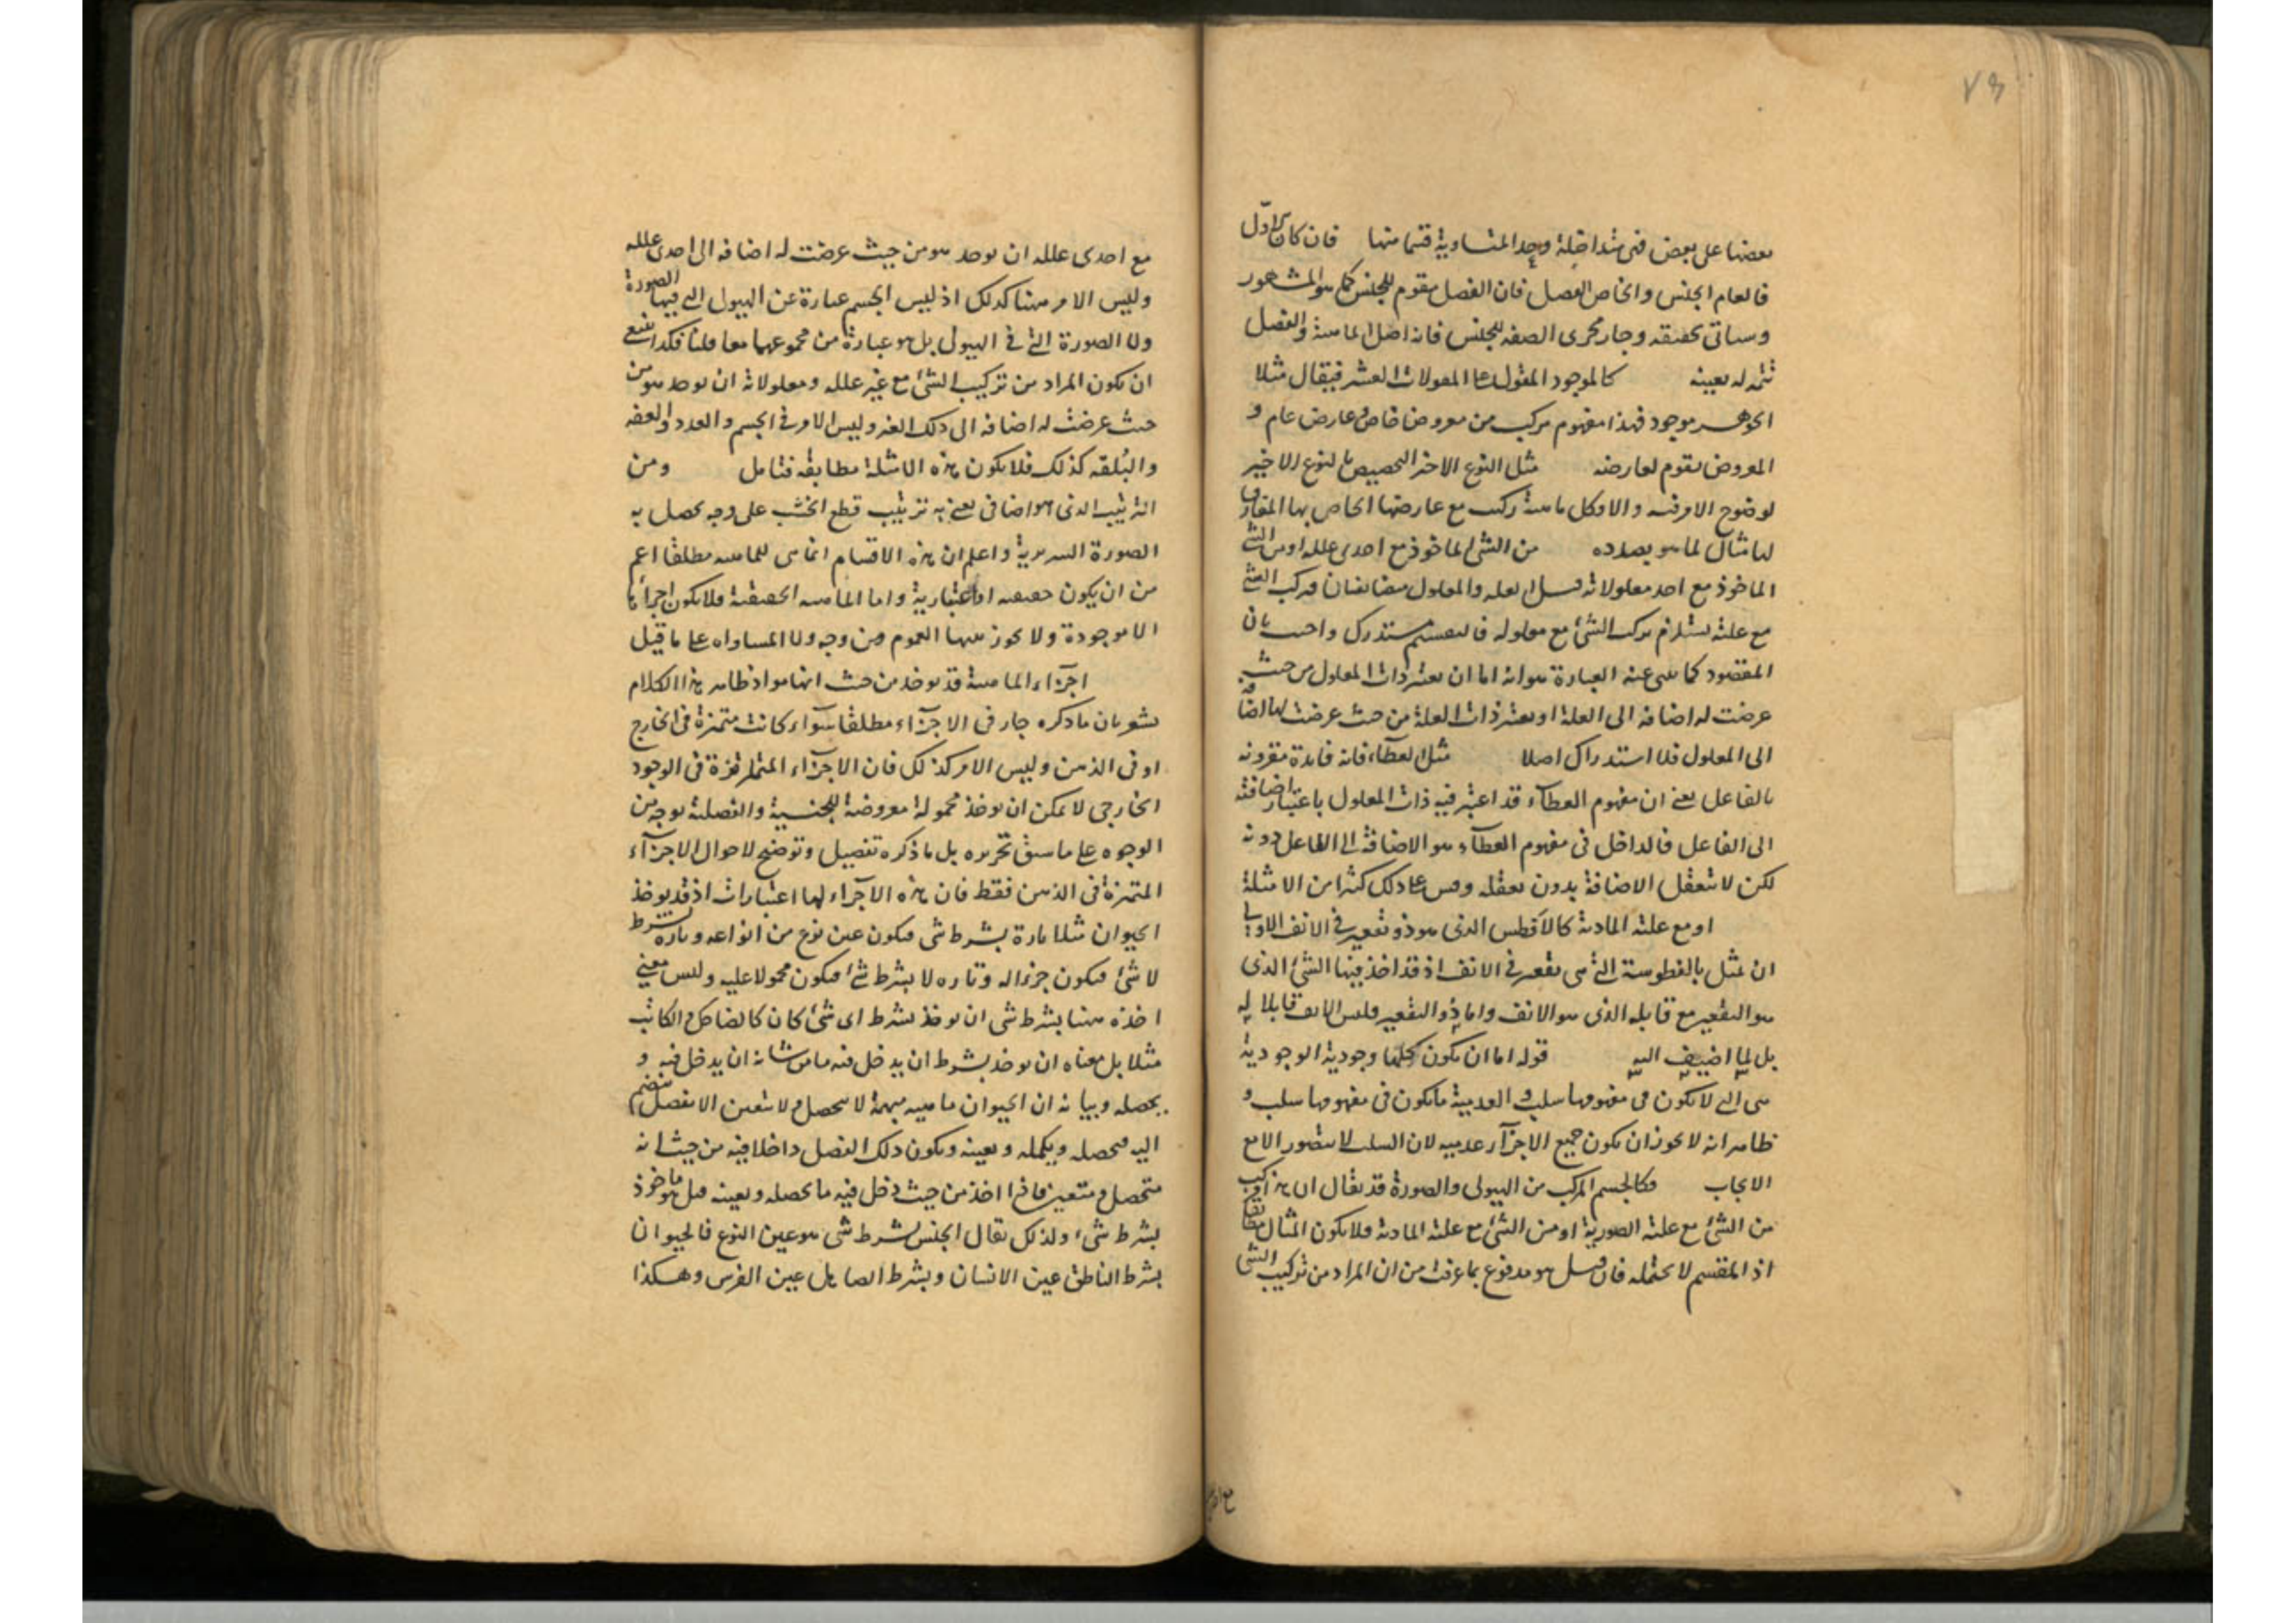 ٧٣
بعضها على بعض فهي متداخلة وعد المتساوية قسما منها فان كان الاول
فالعام الجنس والخاص الفصل فان الفصل مقوم للجنس كما هو المشهور
وسياتي تحقيقه وجار مجرى الصفة للجنس فانه اصل الماهية والفصل
تتمة له يعينه كالموجود المقول على المقولات العشر فيقال مثلا
الجوهر موجود فهذا مفهوم مركب من معروض خاص وعارض عام و
المعروض مقوم لعارضه مثل النوع الاخير التخصيص بالنوع الاخير
لوضوح الامر فيه والا فكل ماهية ركبت مع عارضها الخاص بها المفارق
لها مثال لما هو بصدده من الشئ الماخوذ مع احدى علله او من الشئ
الماخوذ مع احد معلولاته قيل العلة والمعلول متضايفان فتركب الشئ
مع علته يستلزم تركب الشئ مع معلوله فالتقسيم مستدرك واجيب بان
المقصود كما ينبئ عنه العبارة هو انه اما ان يعتبر ذات المعلول من حيث
عرضت له اضافة الى العلة او يعتبر ذات العلة من حيث عرضت لها اضافة
الى المعلول فلا استدراك اصلا مثل العطاء فانه فائدة مقرونة
بالفاعل يعني ان مفهوم العطاء قد اعتبر فيه ذات المعلول باعتبار اضافته
الى الفاعل فالداخل في مفهوم العطاء هو الاضافة الى الفاعل دونه
لكن لا تتعقل الاضافة بدون تعقله وقس على ذلك كثيرا من الامثلة
او مع علته المادية كالافطس الذي هو ذو تقعير في الانف الاولى
ان يمثل بالفطوسة التي هي تقعير في الانف اذ قد اخذ فيها الشئ الذي
هو التقعير مع قابله الذي هو الانف واما ذو التقعير فليس الانف قابلا له
بل لما اضيف اليه قوله اما ان يكون كلها وجودية الوجودية
هي التي لا يكون في مفهومها سلب والعدمية ما يكون في مفهومها سلب و
ظاهر انه لا يجوز ان يكون جميع الاجزاء عدمية لان السلب لا يتصور الا مع
الايجاب فكالجسم المركب من الهيولى والصورة قد يقال ان هذا مركب
من الشئ مع علته الصورية او من الشئ مع علته المادية فلا يكون المثال مطابقا
اذ المقسم لا يحتمله فان قيل هو مدفوع بما عرفت من ان المراد من تركيب الشئ
مع احدى علله ان يوخذ هو من حيث عرضت له اضافة الى احدى علله
وليس الامر ههنا كذلك اذ ليس الجسم عبارة عن الهيولى التي فيها الصورة
ولا الصورة التي في الهيولى بل هو عبارة من مجموعهما معا قلنا فكذا ينبغي
ان يكون المراد من تركيب الشئ مع غير علله ومعلولاته ان يوخذ هو من
حيث عرضت له اضافة الى ذلك الغير وليس الامر في الجسم والعدد والعفة
والبلقة كذلك فلا يكون هذه الامثلة مطابقة فتامل ومن
الترتيب الذي هو اضافي يعني به ترتيب قطع الخشب على وجه يحصل به
الصورة السريرية واعلم ان هذه الاقسام انما هي للماهية مطلقا اعم
من ان يكون حقيقية او اعتبارية واما الماهية الحقيقية فلا يكون اجزائها
الا موجودة ولا يجوز بينها العموم من وجه ولا المساواة على ما قيل
اجزاء الماهية قد يوخذ من حيث انها مواد ظاهر هذا الكلام
يشعر بان ما ذكره جار في الاجزاء مطلقا سواء كانت متميزة في الخارج
او في الذهن وليس الامر كذلك فان الاجزاء المتمايزة في الوجود
الخارجي لا يمكن ان يوخذ محمولة معروضة للجنسية والفصلية بوجه من
الوجوه على ما سبق تحريره بل ما ذكره تفصيل وتوضيح لاحوال الاجزاء
المتميزة في الذهن فقط فان هذه الاجزاء لها اعتبارات اذ قد يوخذ
الحيوان مثلا تارة بشرط شئ فيكون عين نوع من انواعه وتارة بشرط
لا شئ فيكون جزءا له وتارة لا بشرط شئ فيكون محمولا عليه وليس معنى
اخذه ههنا بشرط شئ ان يوخذ بشرط اى شئ كان كالضاحك والكاتب
مثلا بل معناه ان يوخذ بشرط ان يدخل فيه ما من شانه ان يدخل فيه و
يحصله وبيانه ان الحيوان ماهية مبهمة لا يتحصل ولا يتعين الا بفصل ينضم
اليه فيحصله ويكمله ويعينه ويكون ذلك الفصل داخلا فيه من حيث انه
متحصل ومتعين فاذا اخذ من حيث دخل فيه ما يحصله ويعينه قيل هو ماخوذ
بشرط شئ ولذلك يقال الجنس بشرط شئ هو عين النوع فالحيوان
بشرط الناطق عين الانسان وبشرط الصاهل عين الفرس وهكذا